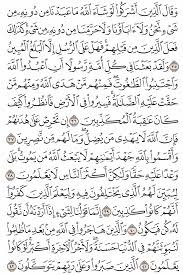 وَقَالَ ٱلَّذِينَ أَشۡرَكُواْ لَوۡ شَآءَ ٱللَّهُ مَا عَبَدۡنَا مِن دُونِهِۦ مِن
شَيۡءٖ نَّحۡنُ وَلَآ ءَابَآؤُنَا وَلَا حَرَّمۡنَا مِن دُونِهِۦ مِن شَيۡءٖۚ كَذَٰلِكَ
فَعَلَ ٱلَّذِينَ مِن قَبۡلِهِمۡۚ فَهَلۡ عَلَى ٱلرُّسُلِ إِلَّا ٱلۡبَلَٰغُ ٱلۡمُبِينُ
٣٥ وَلَقَدۡ بَعَثۡنَا فِي كُلِّ أُمَّةٖ رَّسُولًا أَنِ ٱعۡبُدُواْ ٱللَّهَ
وَٱجۡتَنِبُواْ ٱلطَّٰغُوتَۖ فَمِنۡهُم مَّنۡ هَدَى ٱللَّهُ وَمِنۡهُم
مَّنۡ حَقَّتۡ عَلَيۡهِ ٱلضَّلَٰلَةُۚ فَسِيرُواْ فِي ٱلۡأَرۡضِ فَٱنظُرُواْ كَيۡفَ
كَانَ عَٰقِبَةُ ٱلۡمُكَذِّبِينَ ٣٦ إِن تَحۡرِصۡ عَلَىٰ هُدَىٰهُمۡ
فَإِنَّ ٱللَّهَ لَا يَهۡدِي مَن يُضِلُّۖ وَمَا لَهُم مِّن نَّٰصِرِينَ ٣٧
وَأَقۡسَمُواْ بِٱللَّهِ جَهۡدَ أَيۡمَٰنِهِمۡ لَا يَبۡعَثُ ٱللَّهُ مَن يَمُوتُۚ بَلَىٰ
وَعۡدًا عَلَيۡهِ حَقّٗا وَلَٰكِنَّ أَكۡثَرَ ٱلنَّاسِ لَا يَعۡلَمُونَ ٣٨
لِيُبَيِّنَ لَهُمُ ٱلَّذِي يَخۡتَلِفُونَ فِيهِ وَلِيَعۡلَمَ ٱلَّذِينَ كَفَرُوٓاْ
أَنَّهُمۡ كَانُواْ كَٰذِبِينَ ٣٩ إِنَّمَا قَوۡلُنَا لِشَيۡءٍ إِذَآ أَرَدۡنَٰهُ أَن نَّقُولَ
لَهُۥ كُن فَيَكُونُ ٤٠ وَٱلَّذِينَ هَاجَرُواْ فِي ٱللَّهِ مِنۢ بَعۡدِ مَا ظُلِمُواْ
لَنُبَوِّئَنَّهُمۡ فِي ٱلدُّنۡيَا حَسَنَةٗۖ وَلَأَجۡرُ ٱلۡأٓخِرَةِ أَكۡبَرُۚ لَوۡ كَانُواْ
يَعۡلَمُونَ ٤١ ٱلَّذِينَ صَبَرُواْ وَعَلَىٰ رَبِّهِمۡ يَتَوَكَّلُونَ ٤٢